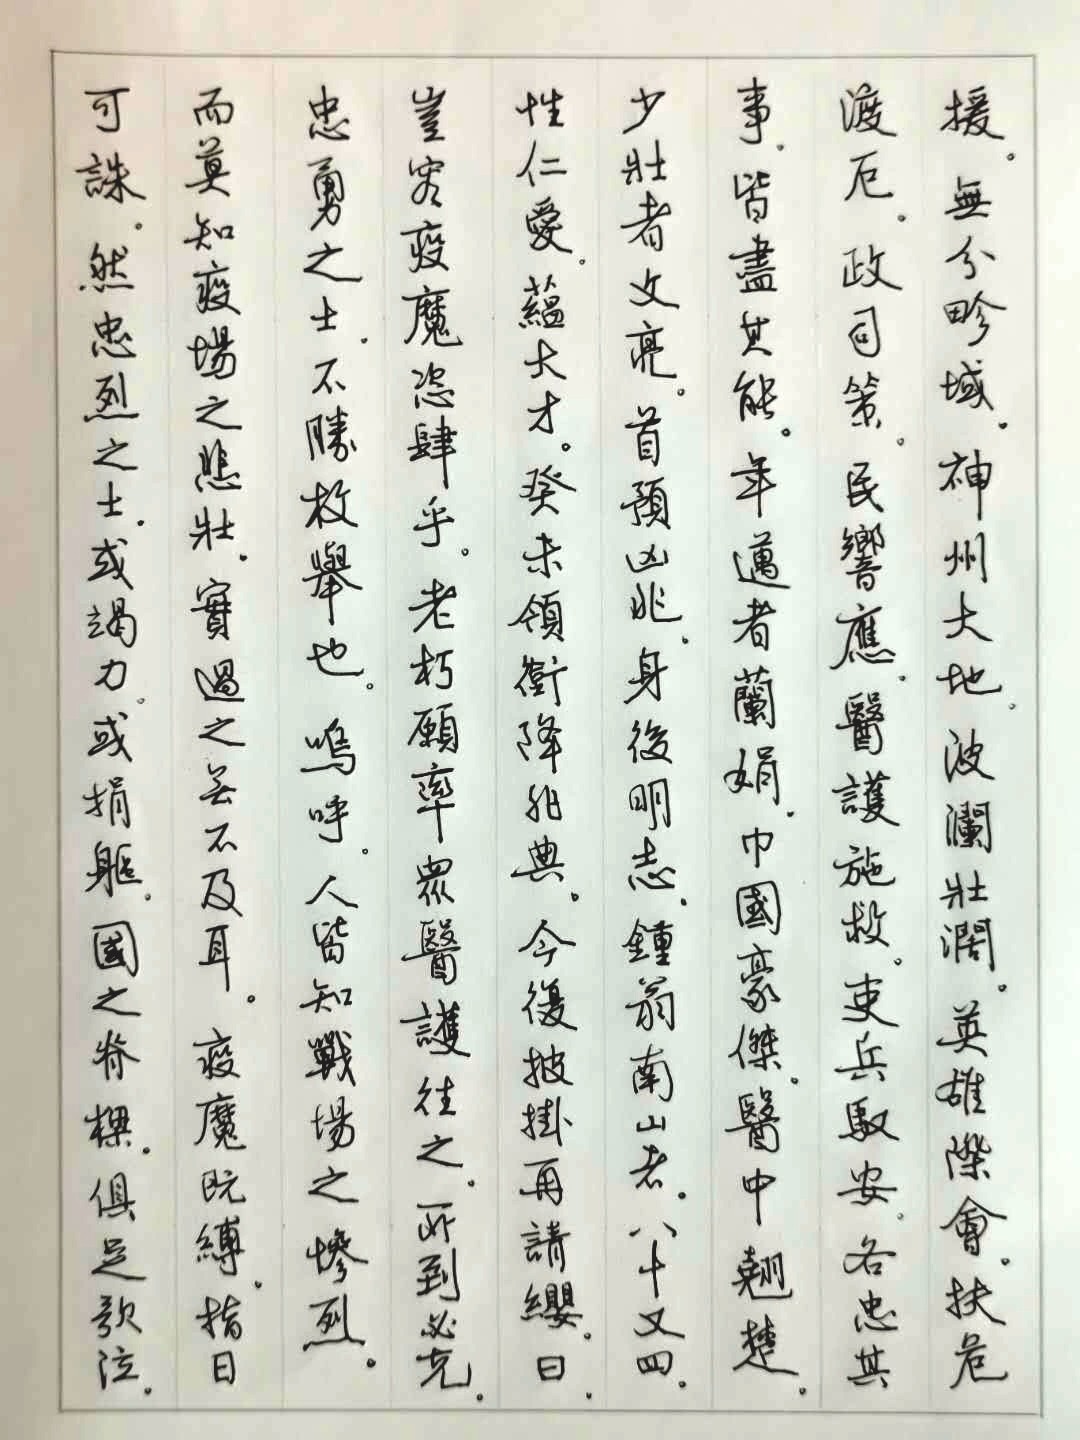 援。無分畛域。神州大地。波瀾壯濶。英雄際會。扶危
渡厄。政司策。民響應。醫護施救。吏兵馭安。各忠其
事。皆盡其能。年邁者蘭娟。巾國豪傑。醫中翹楚。
少壯者文亮。首預凶兆。身後明志。鍾翁南山者。八十又四。
性仁愛。蘊大才。癸未領銜降非典。今復披掛再請纓。曰。
豈容疫魔恣肆乎。老朽願率眾醫護往之。所到必克。
忠勇之士。不勝枚舉也。嗚呼。人皆知戰場之慘烈。
而莫知疫場之悲壯。實過之無不及耳。疫魔既縛。指日
可誅。然忠烈之士。或竭力。或捐軀。國之脊樑。俱足歌泣。